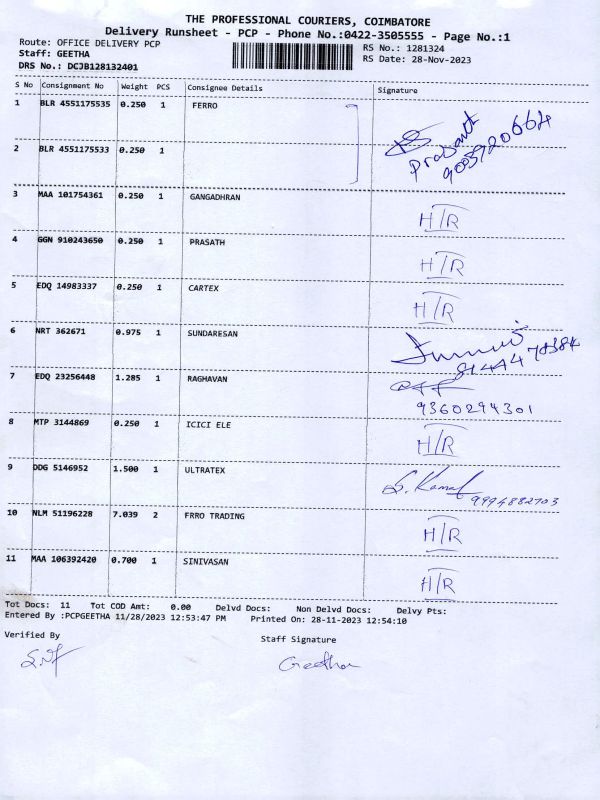 THE PROFESSIONAL COURIERS, COIMBATORE
Delivery Runsheet - PCP - Phone No.:0422-3505555 - Page No.:1
Route: OFFICE DELIVERY PCP RS No.: 1281324
Staff: GEETHA RS Date: 28-Nov-2023
DRS No.: DCJB128132401
S No Consignment No Weight PCS Consignee Details Signature
1 BLR 4551175535 0.250 1 FERRO
Prasanth
9003920664
2 BLR 4551175533 0.250 1
3 MAA 101754361 0.250 1 GANGADHRAN H/R
4 GGN 910243650 0.250 1 PRASATH H/R
5 EDQ 14983337 0.250 1 CARTEX H/R
6 NRT 362671 0.975 1 SUNDARESAN
7 EDQ 23256448 1.285 1 RAGHAVAN 9360294301
8 MTP 3144869 0.250 1 ICICI ELE H/R
9 DDG 5146952 1.500 1 ULTRATEX S. Kamal 9994882703
10 NLM 51196228 7.039 2 FRRO TRADING H/R
11 MAA 106392420 0.700 1 SINIVASAN H/R
Tot Docs: 11 Tot COD Amt: 0.00 Delvd Docs: Non Delvd Docs: Delvy Pts:
Entered By :PCPGEETHA 11/28/2023 12:53:47 PM Printed On: 28-11-2023 12:54:10
Verified By Staff Signature
Geetha